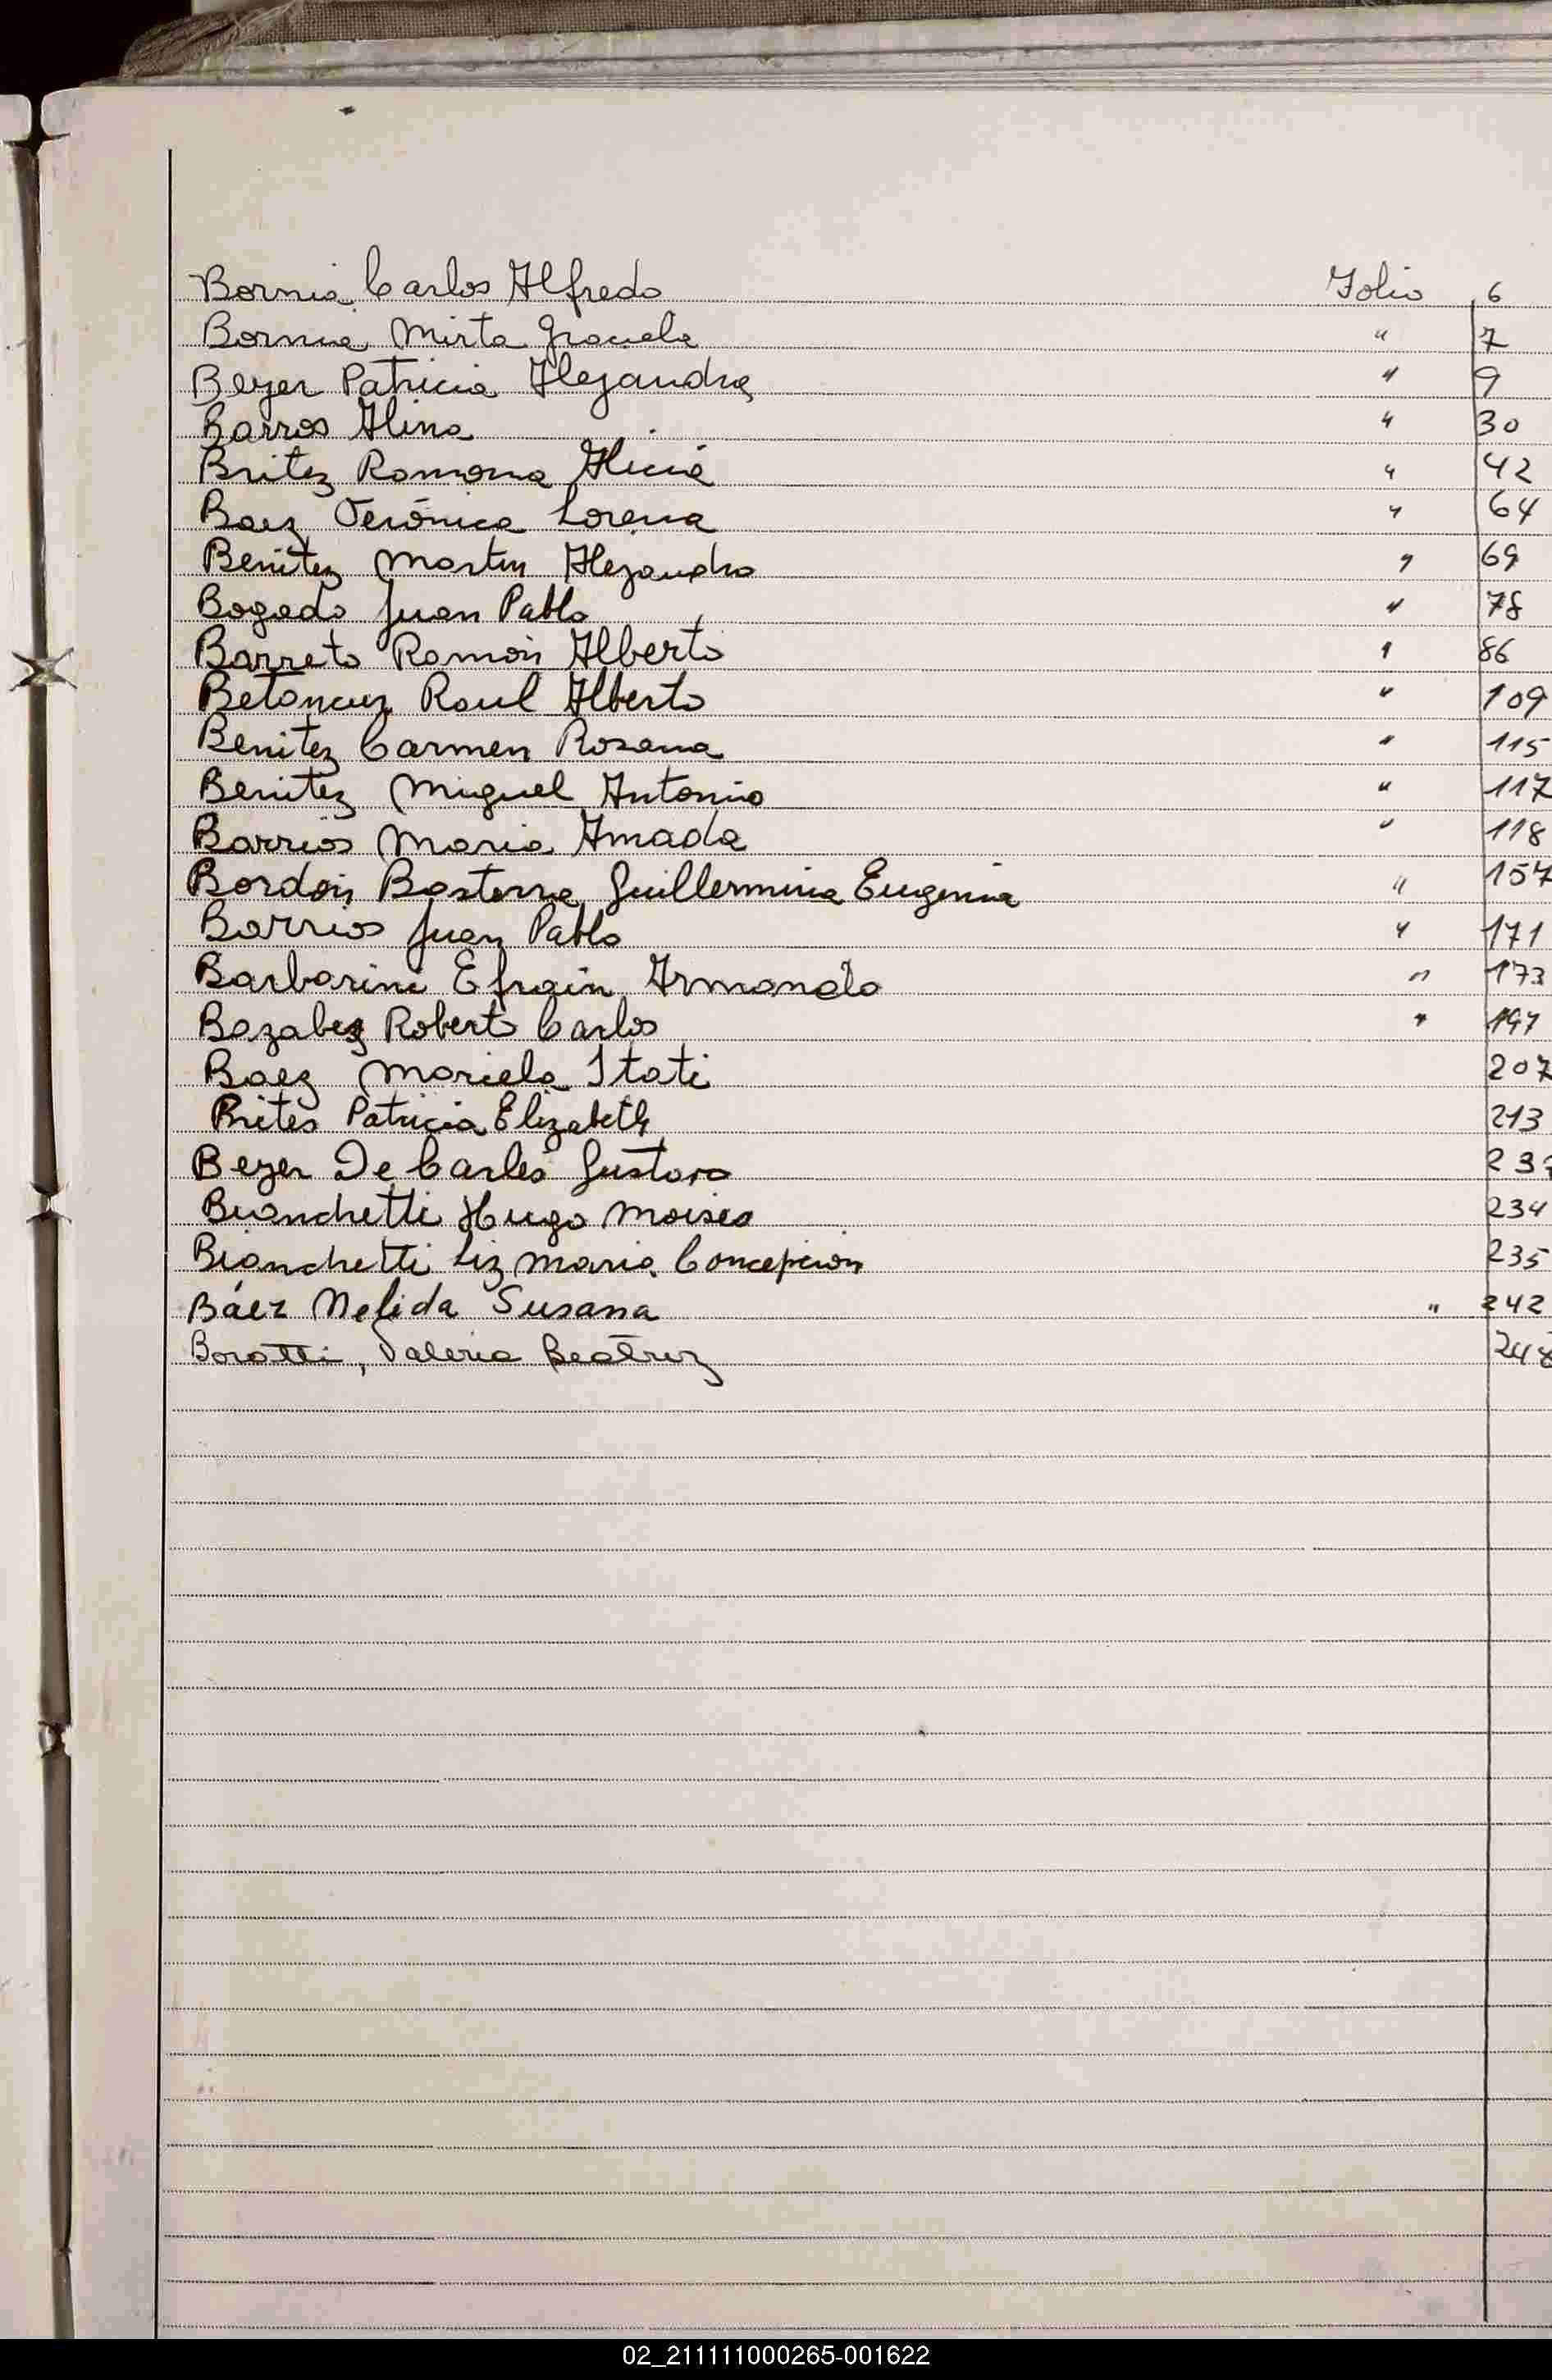 Bornia Carlos Alfredo Folio 6
Bornia Mirta Graciela " 7
Beyer Patricia Alejandra " 9
Barros Alina " 30
Britez Ramona Alicia " 42
Baez Verónica Lorena " 64
Benítez Martin Alejandro " 69
Bogado Juan Pablo " 78
Barreto Ramón Alberto " 86
Betancuz Raul Alberto " 109
Benitez Carmen Rosana " 115
Benitez Miguel Antonio " 117
Barrios Maria Amada " 118
Bordón Basterra Guillermina Eugenia " 157
Barrios Juan Pablo " 171
Barbarini Efraín Armando " 173
Bazabez Roberto Carlos " 197
Baez Mariela Itati 207
Brites Patricia Elizabeth 213
Beyer De Carles Gustavo
Bianchetti Hugo Moises 234
Bianchetti Liz Maria Concepción 235
Báez Nelida Susana " 242
Boratti, Valeria Beatriz 248
02_211111000265-001622